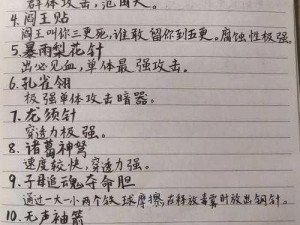 群体攻击，范围大。
4.阎王贴
阎王叫你三更死，谁敢留你到五更。腐蚀性极强。
5.暴雨梨花针
出必见血，单体最强攻击。
6.孔雀翎
极强单体攻击暗器。
7.龙须针
穿透力极强。
8.诸葛神弩
速度较快，穿透力强。
9.子母追魂夺命胆
通过一大一小两个铁球摩擦，在释放毒囊时放出钢针。
10.无声袖箭